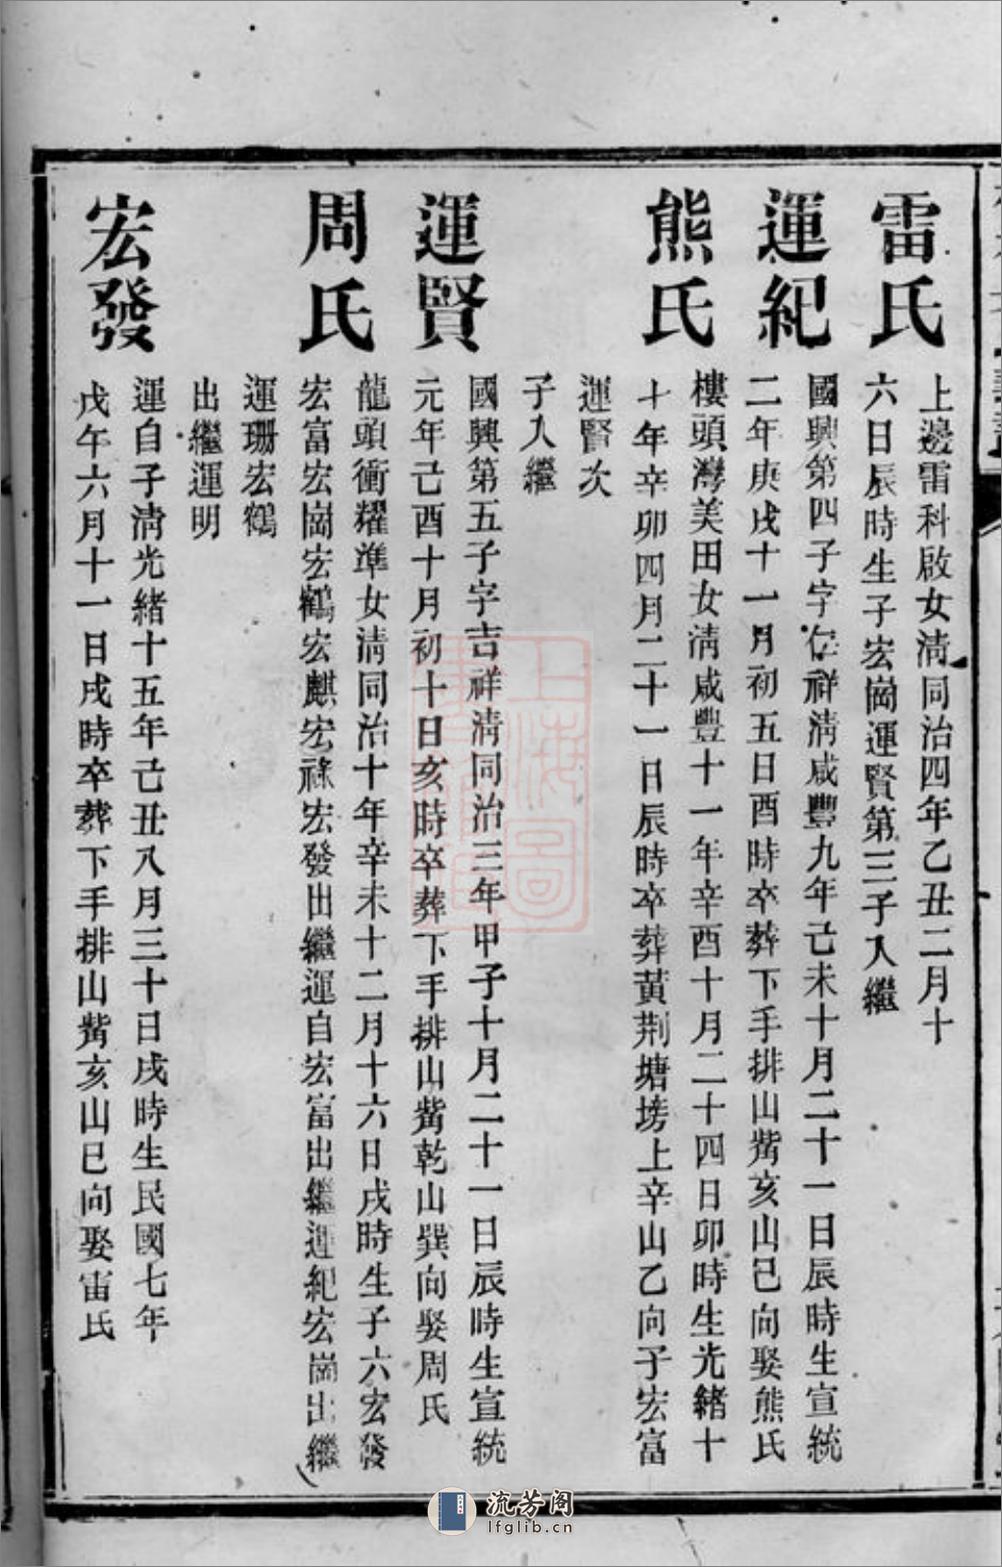 雷氏
上邊雷科啟女淸同治四年乙丑二月十
六日辰時生子宏崗運賢第三子入繼
運紀
國興第四子字仁祥淸咸豐九年己未十月二十一日辰時生宣統
二年庚戌十一月初五日酉時卒葬下手排山觜亥山巳向娶熊氏
熊氏
樓頭灣美田女淸咸豐十一年辛酉十月二十四日卯時生光緒十
十年辛卯四月二十一日辰時卒葬黃荆塘塝上辛山乙向子宏富
運賢次
子入繼
運賢
國興第五子字吉祥淸同治三年甲子十月二十一日辰時生宣統
元年己酉十月初十日亥時卒葬下手排山觜乾山巽向娶周氏
周氏
龍頭衝耀準女淸同治十年辛未十二月十六日戌時生子六宏發
宏富宏崗宏鶴宏麒宏祿宏發出繼運自宏富出繼運紀宏崗出繼
運珊宏鶴
出繼運明
宏發
運自子淸光緒十五年己丑八月三十日戌時生民國七年
戊午六月十一日戌時卒葬下手排山觜亥山巳向娶雷氏
上海圖
流芳阁
lfglib.cn